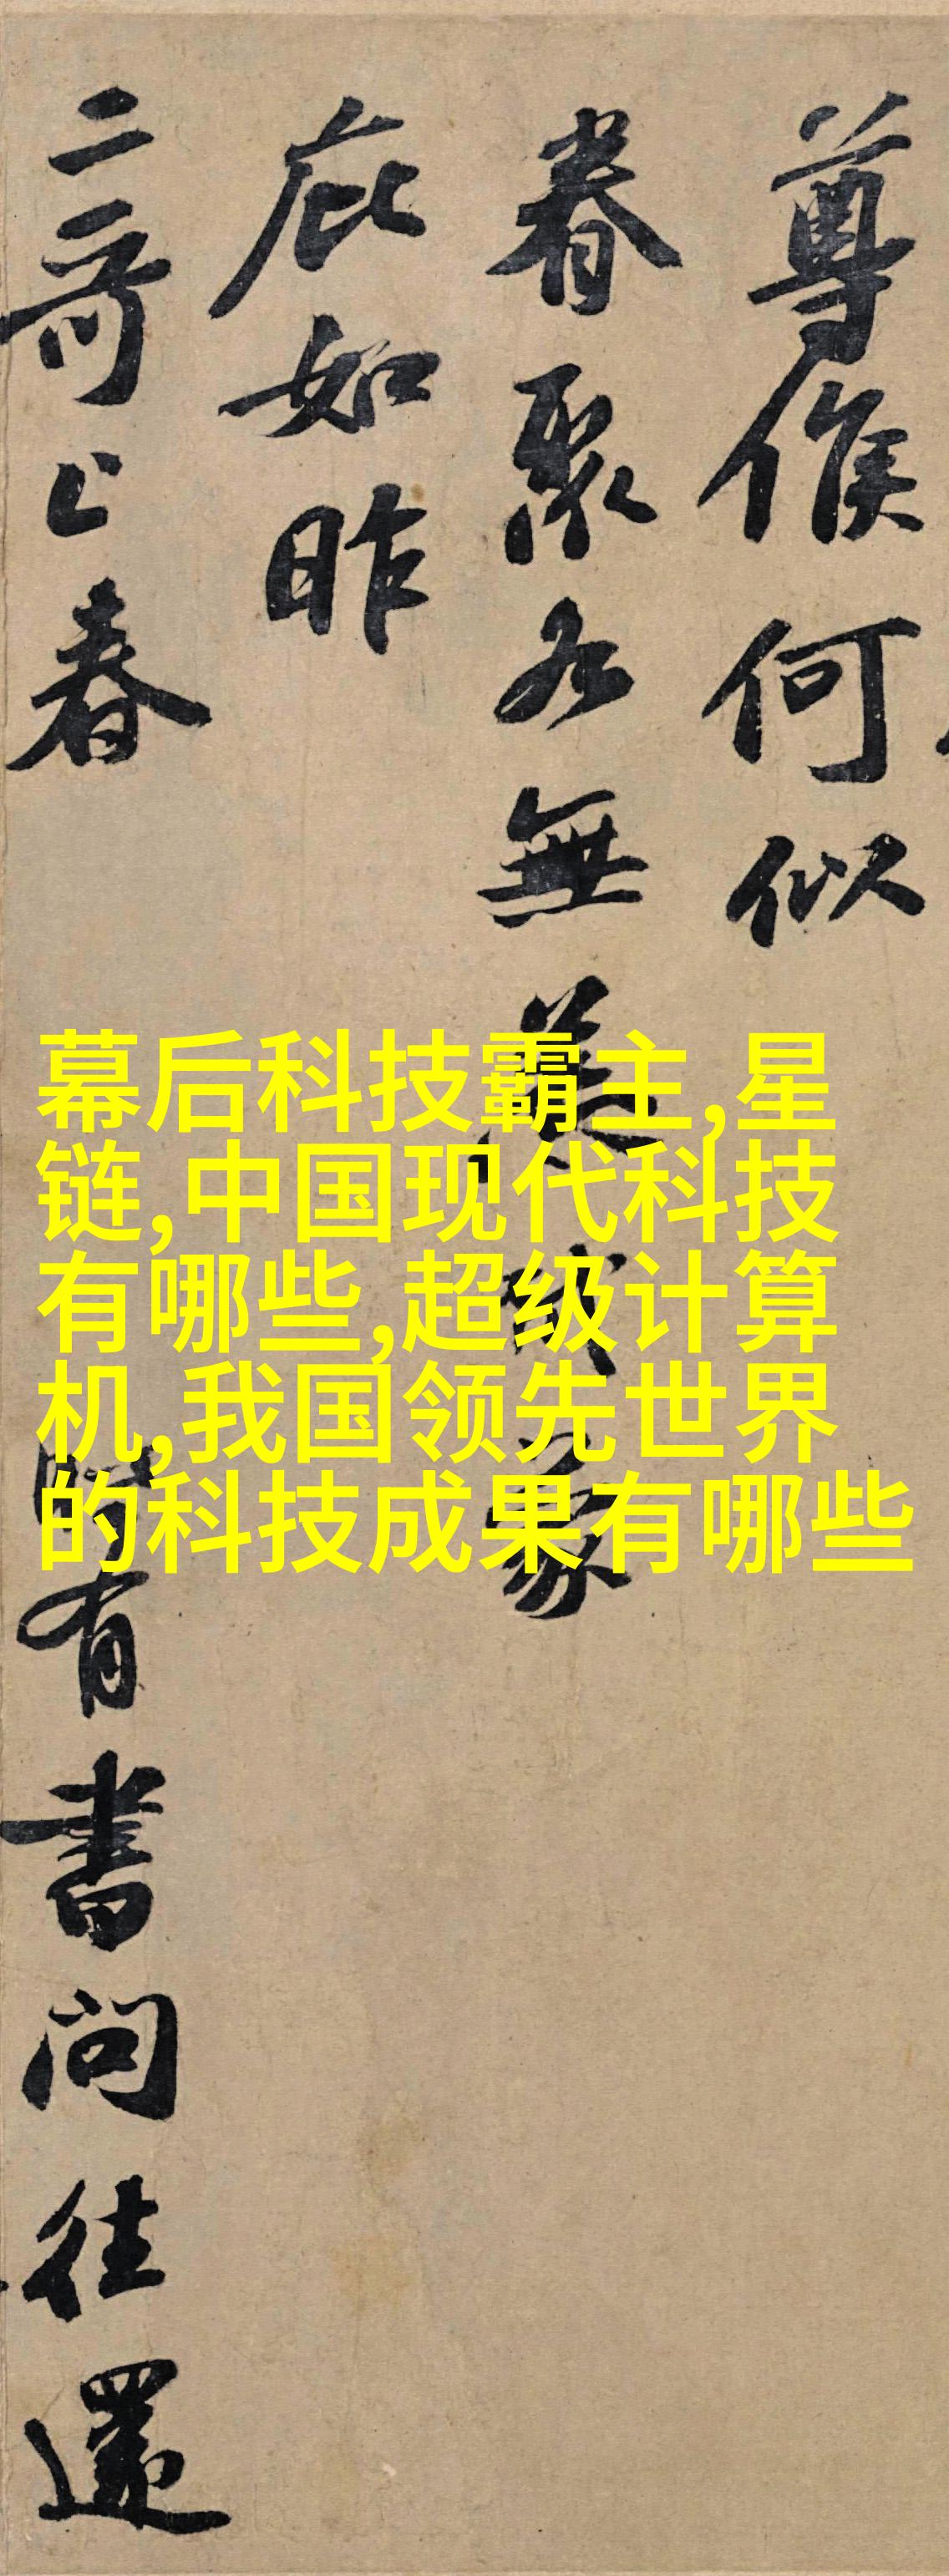 尊候何似
眷聚各無恙 蒙
庇如昨
二哥上春時有書問往還
幕后科技霸主,星
链,中国现代科技
有哪些,超级计算
机,我国领先世界
的科技成果有哪些